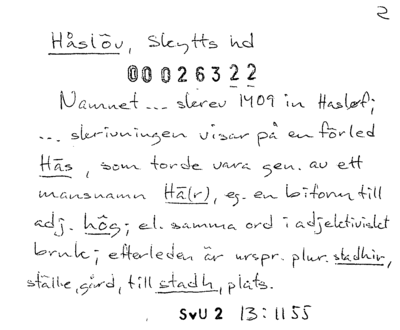 2
Håslöv, Skytts hd
00026322
Namnet ... skrev 1409 in Hasløf;
... skrivningen visar på en förled
Hās, som torde vara gen. av ett
mansnamn Hā(r), eg. en biform till
adj. hög; el. samma ord i adjektiviskt
bruk; efterleden är urspr. plur. stadhir,
ställe, gård, till stadh, plats.
SvU 2 13:1155